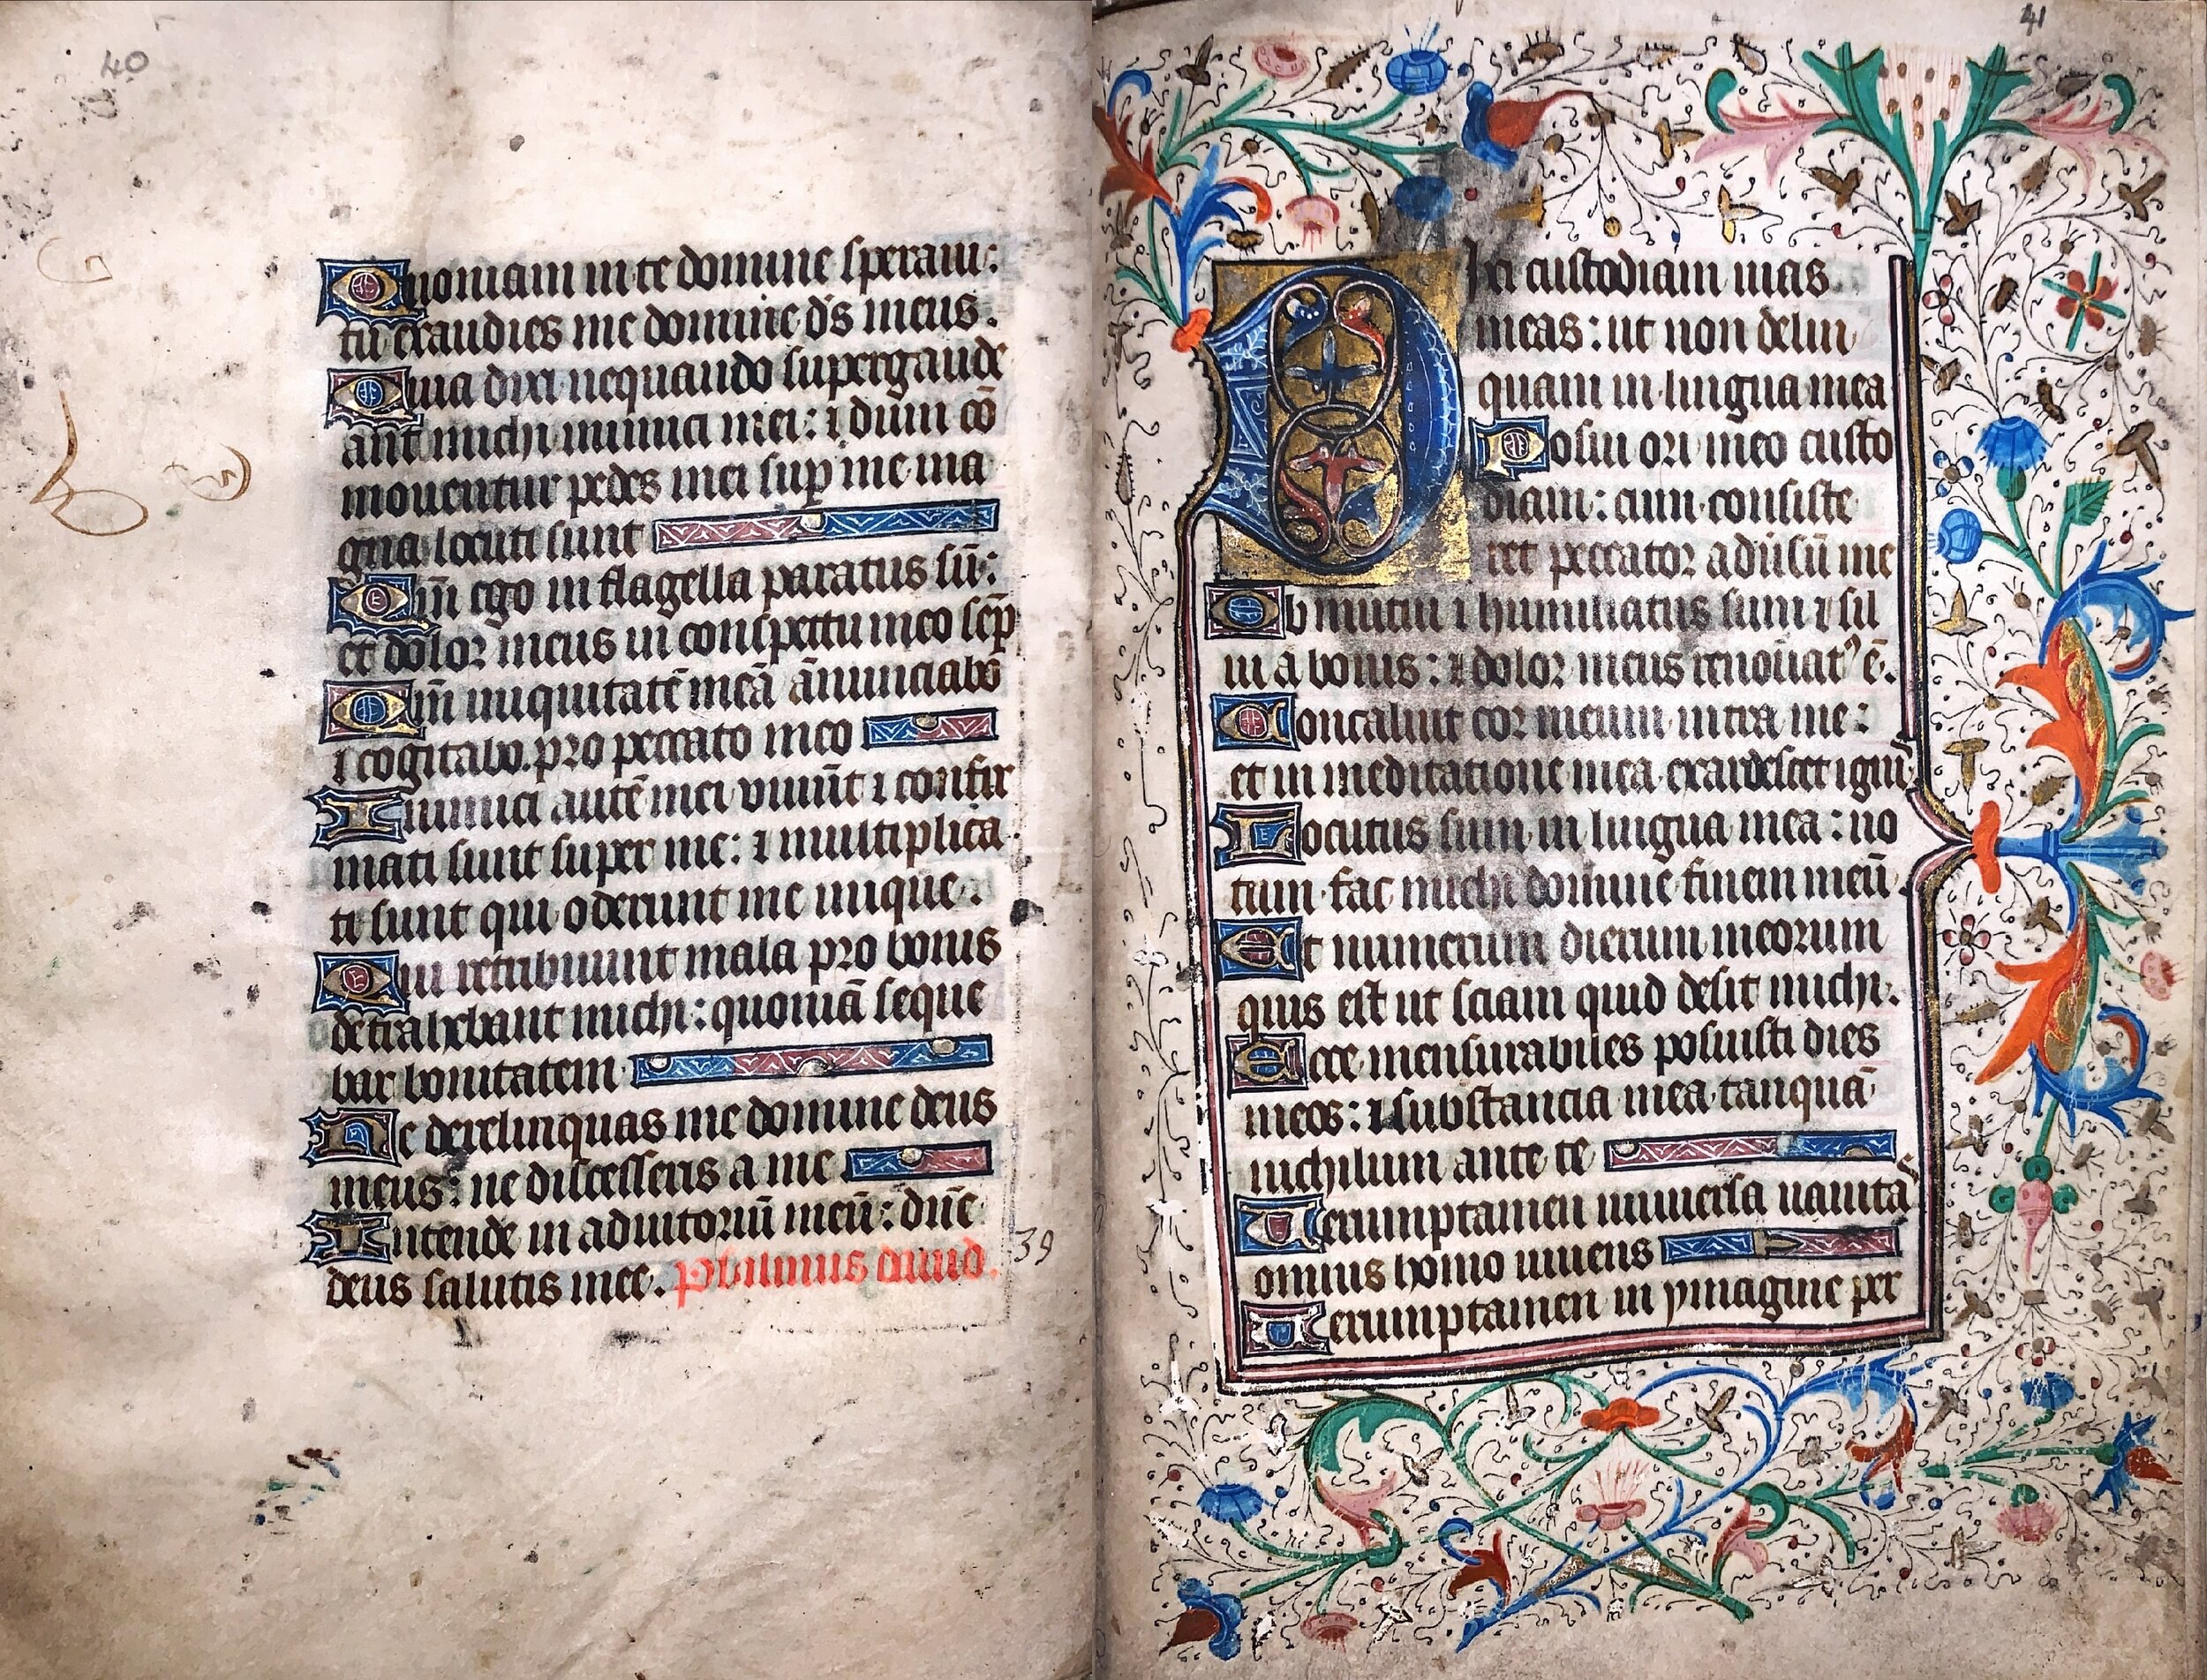 40
Quoniam in te domine speraui:
tu exaudies me domine d̅s meus.
Quia dixi nequando supergaude
ant michi inimici mei: ⁊ dum cō
mouentur pedes mei sup̲ me ma
gna locuti sunt
Qm̅ ego in flagella paratus sū:
et dolor meus in conspectu meo sēp
Qm̅ iniquitatē meā ānunciabo
⁊ cogitabo pro peccato meo
Inimici autē mei viuūt ⁊ confir
mati sunt super me: ⁊ multiplica
ti sunt qui oderunt me inique.
Qui retribuunt mala pro bonis
detrahebant michi: quoniā seque
bar bonitatem
Ne derelinquas me domine deus
meus: ne discesseris a me
Intende in adiutoriū meū: dn̄e
deus salutis mee. Psalmus dauid.
39
41
Dixi custodiam uias
meas: ut non delin
quam in lingua mea
Posui ori meo custo
diam: cum consiste
ret peccator adūsū me
Obmutui ⁊ humiliatus sum ⁊ sil
ui a bonis: ⁊ dolor meus renouatꝰ ē.
Concaluit cor meum intra me:
et in meditatione mea exardescet ignis
Locutus sum in lingua mea: no
tum fac michi domine finem meū.
Et numerum dierum meorum
quis est ut sciam quid desit michi.
Ecce mensurabiles posuisti dies
meos: ⁊ substancia mea tanquā
nichilum ante te
Uerumptamen uniuersa uanitas
omnis homo uiuens
Uerumptamen in ymagine per